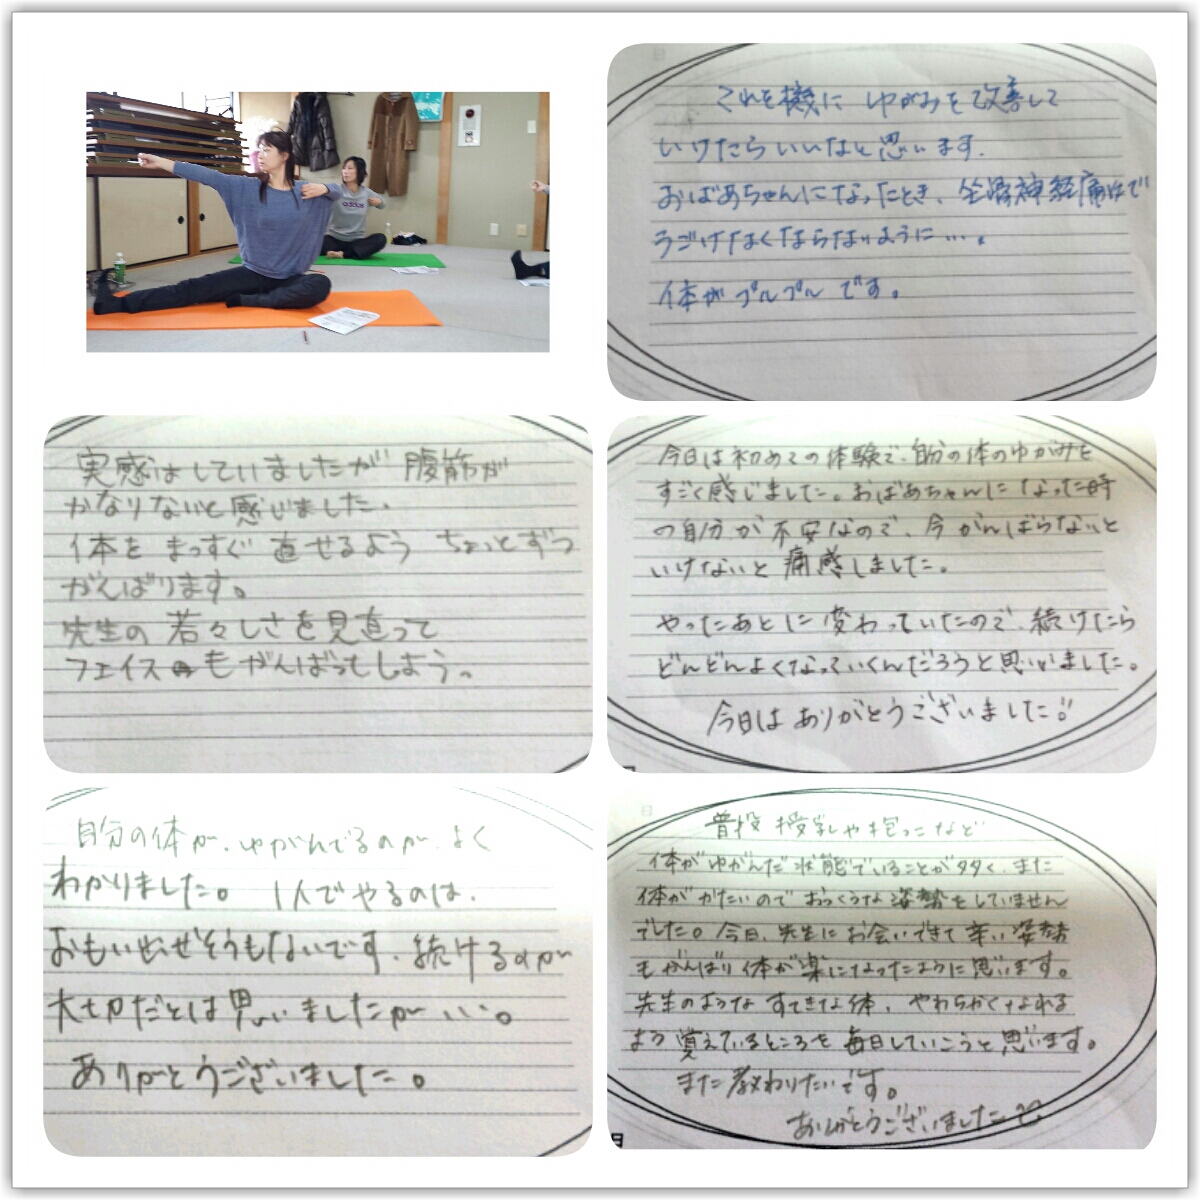 adidas
これを機に ゆがみを改善して
いけたらいいなと思います.
おばあちゃんになったとき、坐骨神経痛などで
うごけなくならないように….
体がプルプルです。
実感はしていましたが 腹筋が
かなりないと感じました.
体をまっすぐ 直せるよう ちょっとずつ
がんばります。
先生の 若々しさを見直って
フェイスもがんばってしよう。
今日は初めての体験で、自分の体のゆがみを
すごく感じました。おばあちゃんになった時
の自分が不安なので、今がんばらないと
いけないと痛感しました。
やったあとに変わっていたので、続けたら
どんどんよくなっていくんだろうと思いました。
今日は ありがとうございました!!
自分の体が、ゆがんでるのが、よく
わかりました。 1人でやるのは、
おもい出せそうもないです、続けるのが
大切だとは思いましたが…。
ありがとうございました。
普段 授乳や抱っこなど
体がゆがんだ状態でいることが多く、また
体がかたいので おっくうな姿勢をしていません
でした。今日、先生にお会いできて辛い姿勢
もがんばり体が楽になったように思います。
先生のような すてきな体、やわらかくなれる
よう覚えているところを毎日していこうと思います。
また教わりたいです。
ありがとうございました